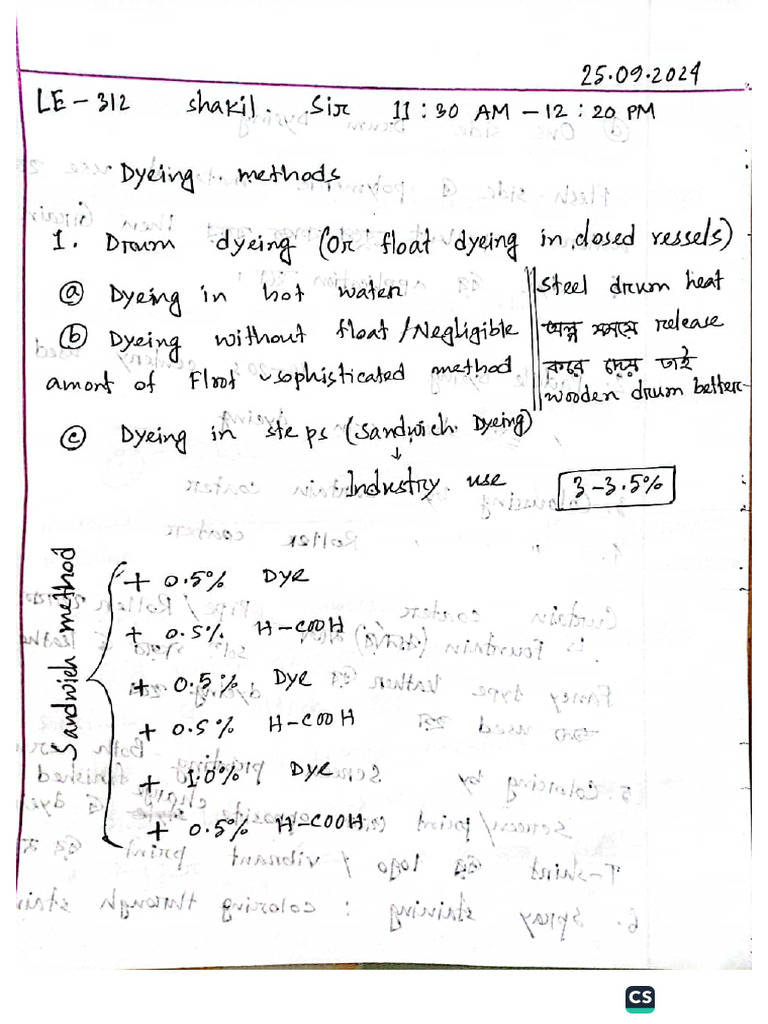 25.09.2024
LE-312 Shakil. Sir 11:30 AM-12:20 PM
Dyeing methods
1. Drum dyeing (Or float dyeing in closed vessels)
ⓐ Dyeing in hot water
ⓑ Dyeing without float/Negligible
amont of Float sophisticated method
ⓒ Dyeing in steps (Sandwich Dyeing)
↓
Industry use
3-3.5%
Steel drum heat
অল্প সময়ে release
করে দেয় তাই
wooden drum better
Sandwich method
+ 0.5% Dye
+ 0.5% H-COOH
+ 0.5% Dye
+ 0.5% H-COOH
+ 1.0% Dye
+ 0.5% H-COOH
CS